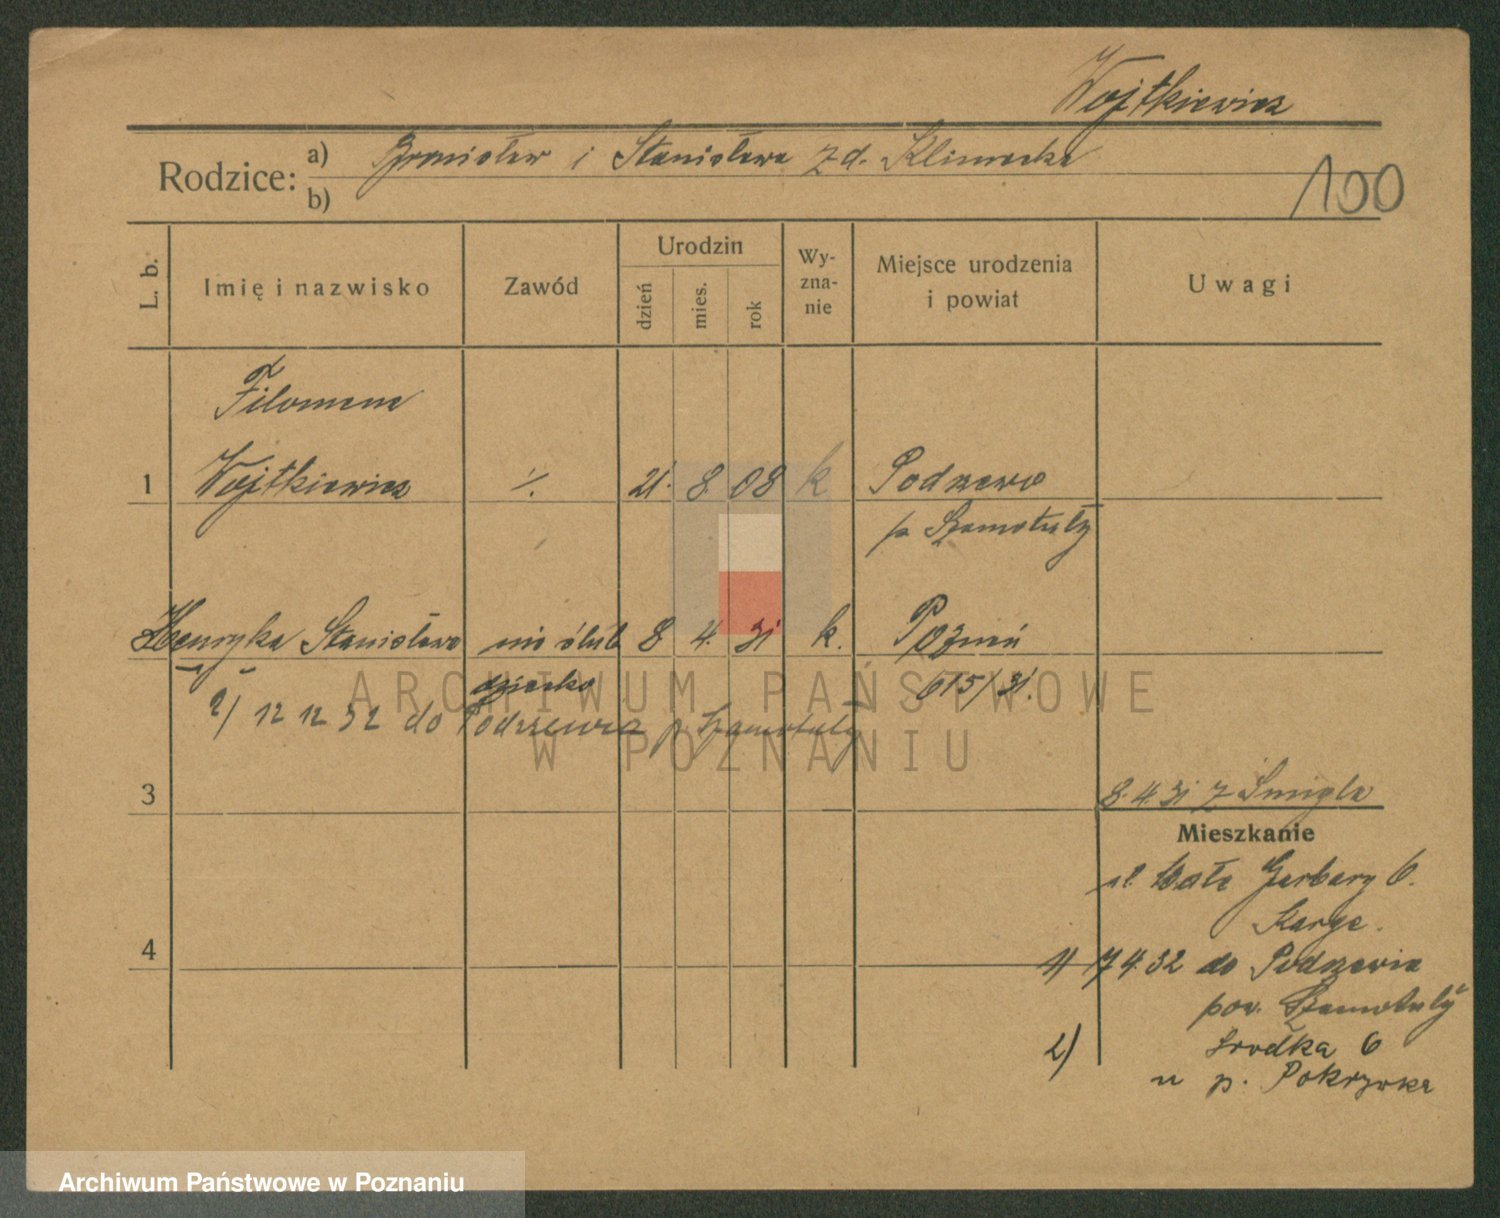 Wojtkiewicz
Rodzice: a) Bronisław i Stanisława z d. Klimecka
b)
100
L. b.
Imię i nazwisko
Zawód
Urodzin
dzień
mies.
rok
Wy-
zna-
nie
Miejsce urodzenia
i powiat
Uwagi
Filomena
1 Wojtkiewicz ·/. 21. 8. 08 k Podrzewo
p Szamotuły
Henryka Stanisława nie ślub 8 4. 31 k. Poznań
dziecko 615/31.
2) 12 12 32 do Podrzewia p Szamotuły
3
8. 4. 31 z Śmigla
Mieszkanie
ul. Małe Garbary 6.
Karge.
4
1) 17 4 32 do Podrzewia
pow. Szamotuły
2) Środka 6
u p. Pokrzywka
ARCHIWUM PAŃSTWOWE
W POZNANIU
Archiwum Państwowe w Poznaniu